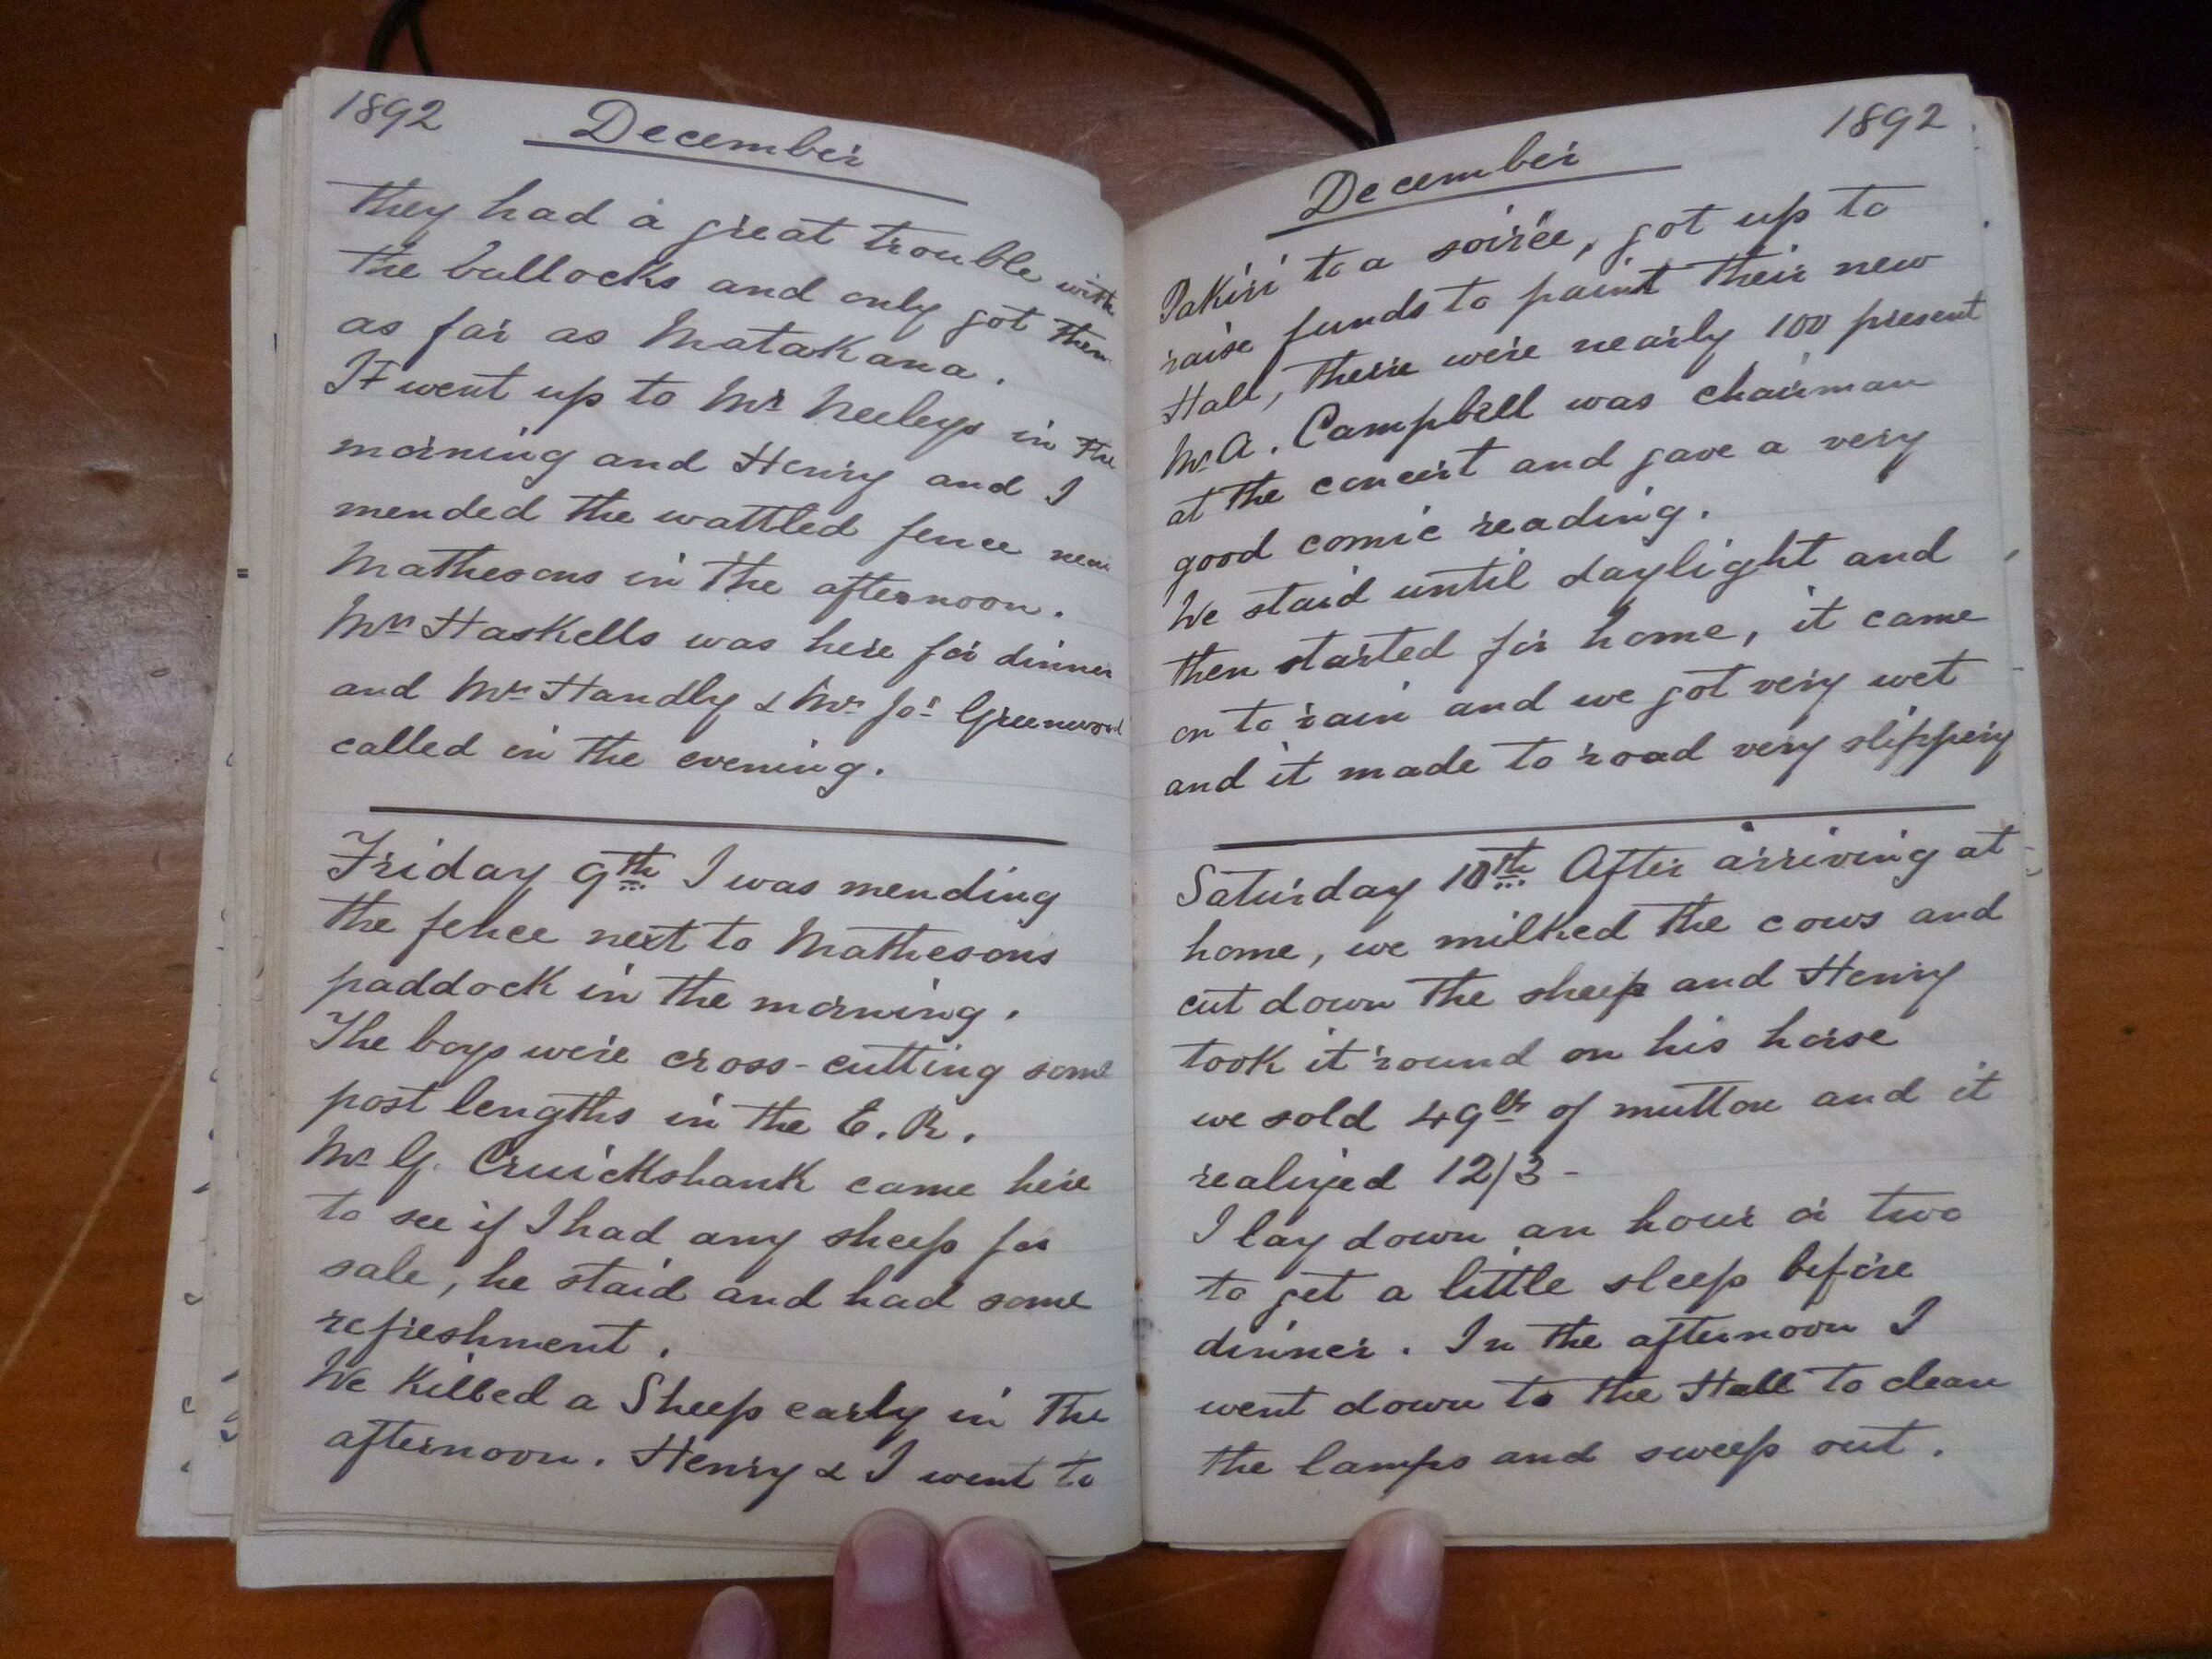 1892 December
they had a great trouble with
the bullocks and only got them
as far as Matakana.
It went up to Mr Neeleys in the
morning and Henry and I
mended the wattled fence near
Mathesons in the afternoon.
Mrs Haskells was here for dinner
and Mrs Handly & Mr Jos Greenwood
called in the evening.
Friday 9th I was mending
the fence next to Mathesons
paddock in the morning.
The boys were cross-cutting some
post lengths in the E. R.
Mr G. Cruickshank came here
to see if I had any sheep for
sale, he staid and had some
refreshment.
We Killed a Sheep early in the
afternoon. Henry & I went to
December 1892
Pakiri to a soirée, got up to
raise funds to paint their new
Hall, there were nearly 100 present
Mr A. Campbell was chairman
at the concert and gave a very
good comic reading.
We staid until daylight and
then started for home, it came
on to rain and we got very wet
and it made to road very slippery
Saturday 10th After arriving at
home, we milked the cows and
cut down the sheep and Henry
took it round on his horse
we sold 49lbs of mutton and it
realized 12/3 -
I lay down an hour or two
to get a little sleep before
dinner. In the afternoon I
went down to the Hall to clean
the lamps and sweep out.